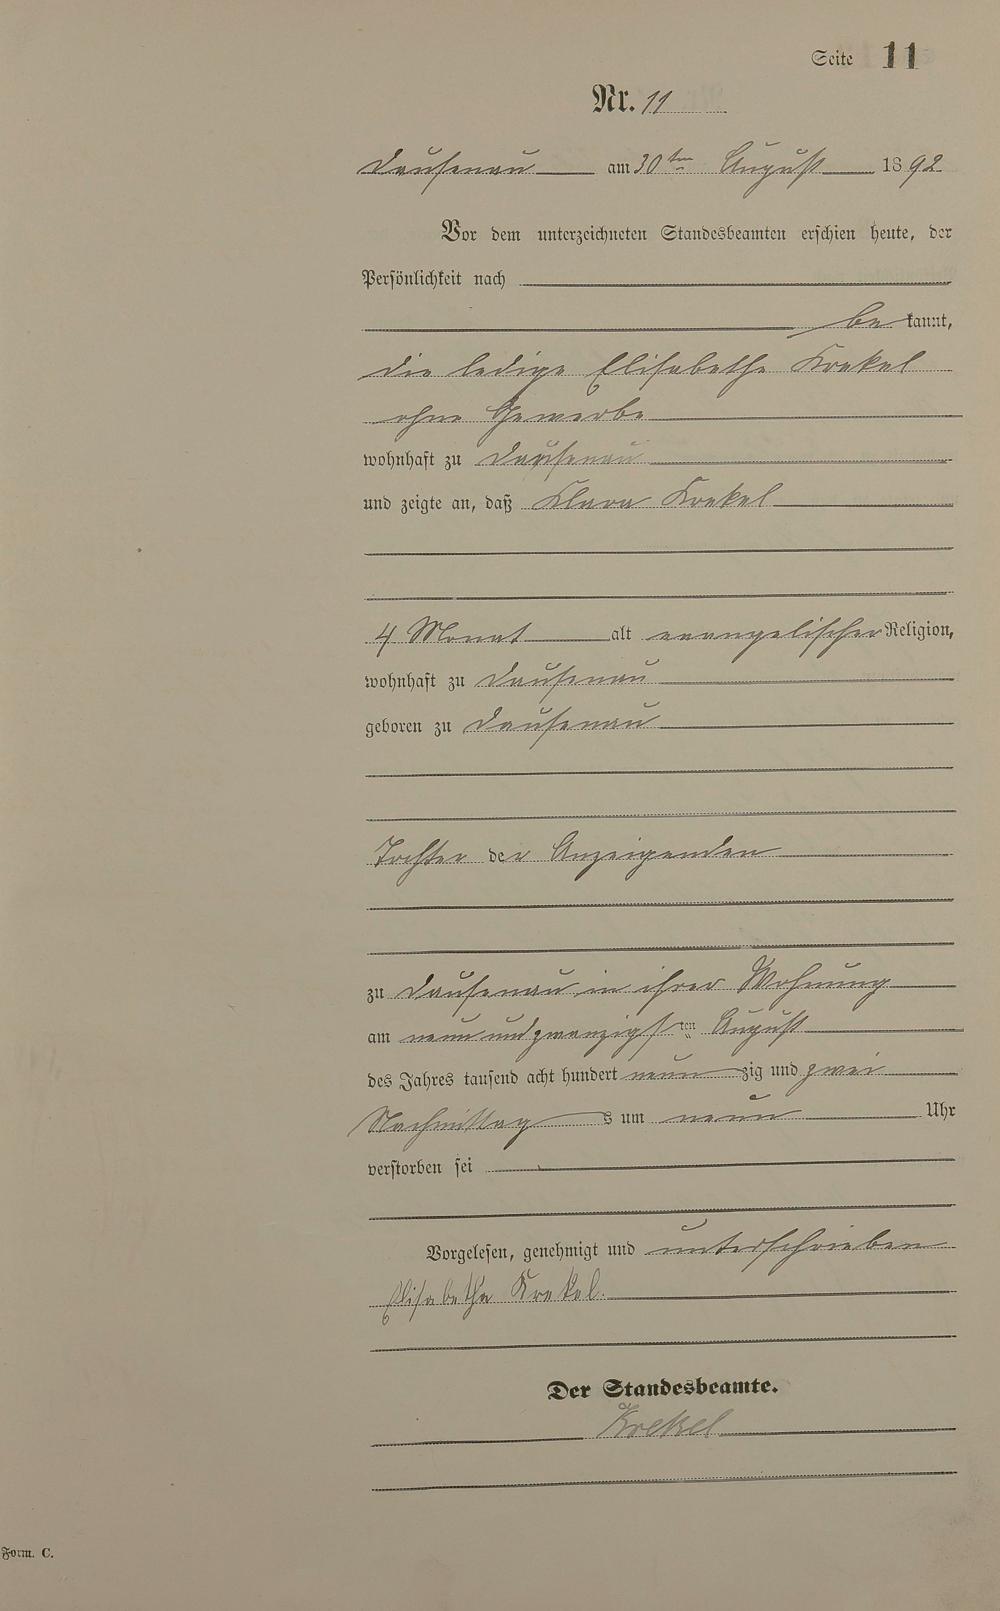 Seite 11
Nr. 11
Dausenau am 30ten August 1892
Vor dem unterzeichneten Standesbeamten erschien heute, der
Persönlichkeit nach
bekannt,
die ledige Elisabethe Krekel
ohne Gewerbe
wohnhaft zu Dausenau
und zeigte an, daß Klara Krekel
4 Monat alt evangelischer Religion,
wohnhaft zu Dausenau
geboren zu Dausenau
Tochter der Anzeigenden
zu Dausenau in ihrer Wohnung
am neunundzwanzigsten August
des Jahres tausend acht hundert neunzig und zwei
Nachmittags um neun Uhr
verstorben sei
Vorgelesen, genehmigt und unterschrieben
Elisabethe Krekel.
Der Standesbeamte.
Krekel
Form. C.